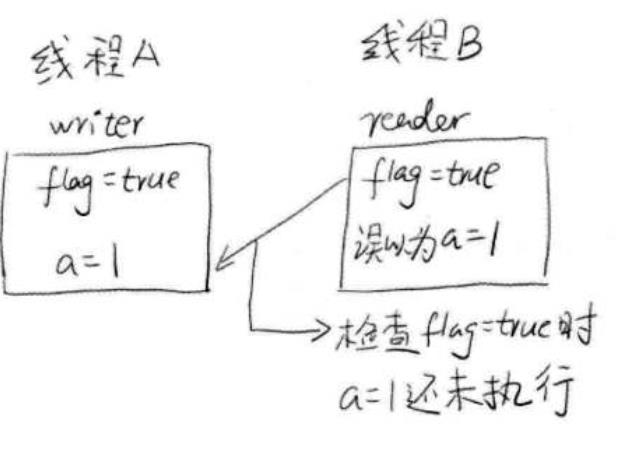 线程A
writer
flag=true
a=1
线程B
reader
flag=true
误以为a=1
检查flag=true时
a=1还未执行